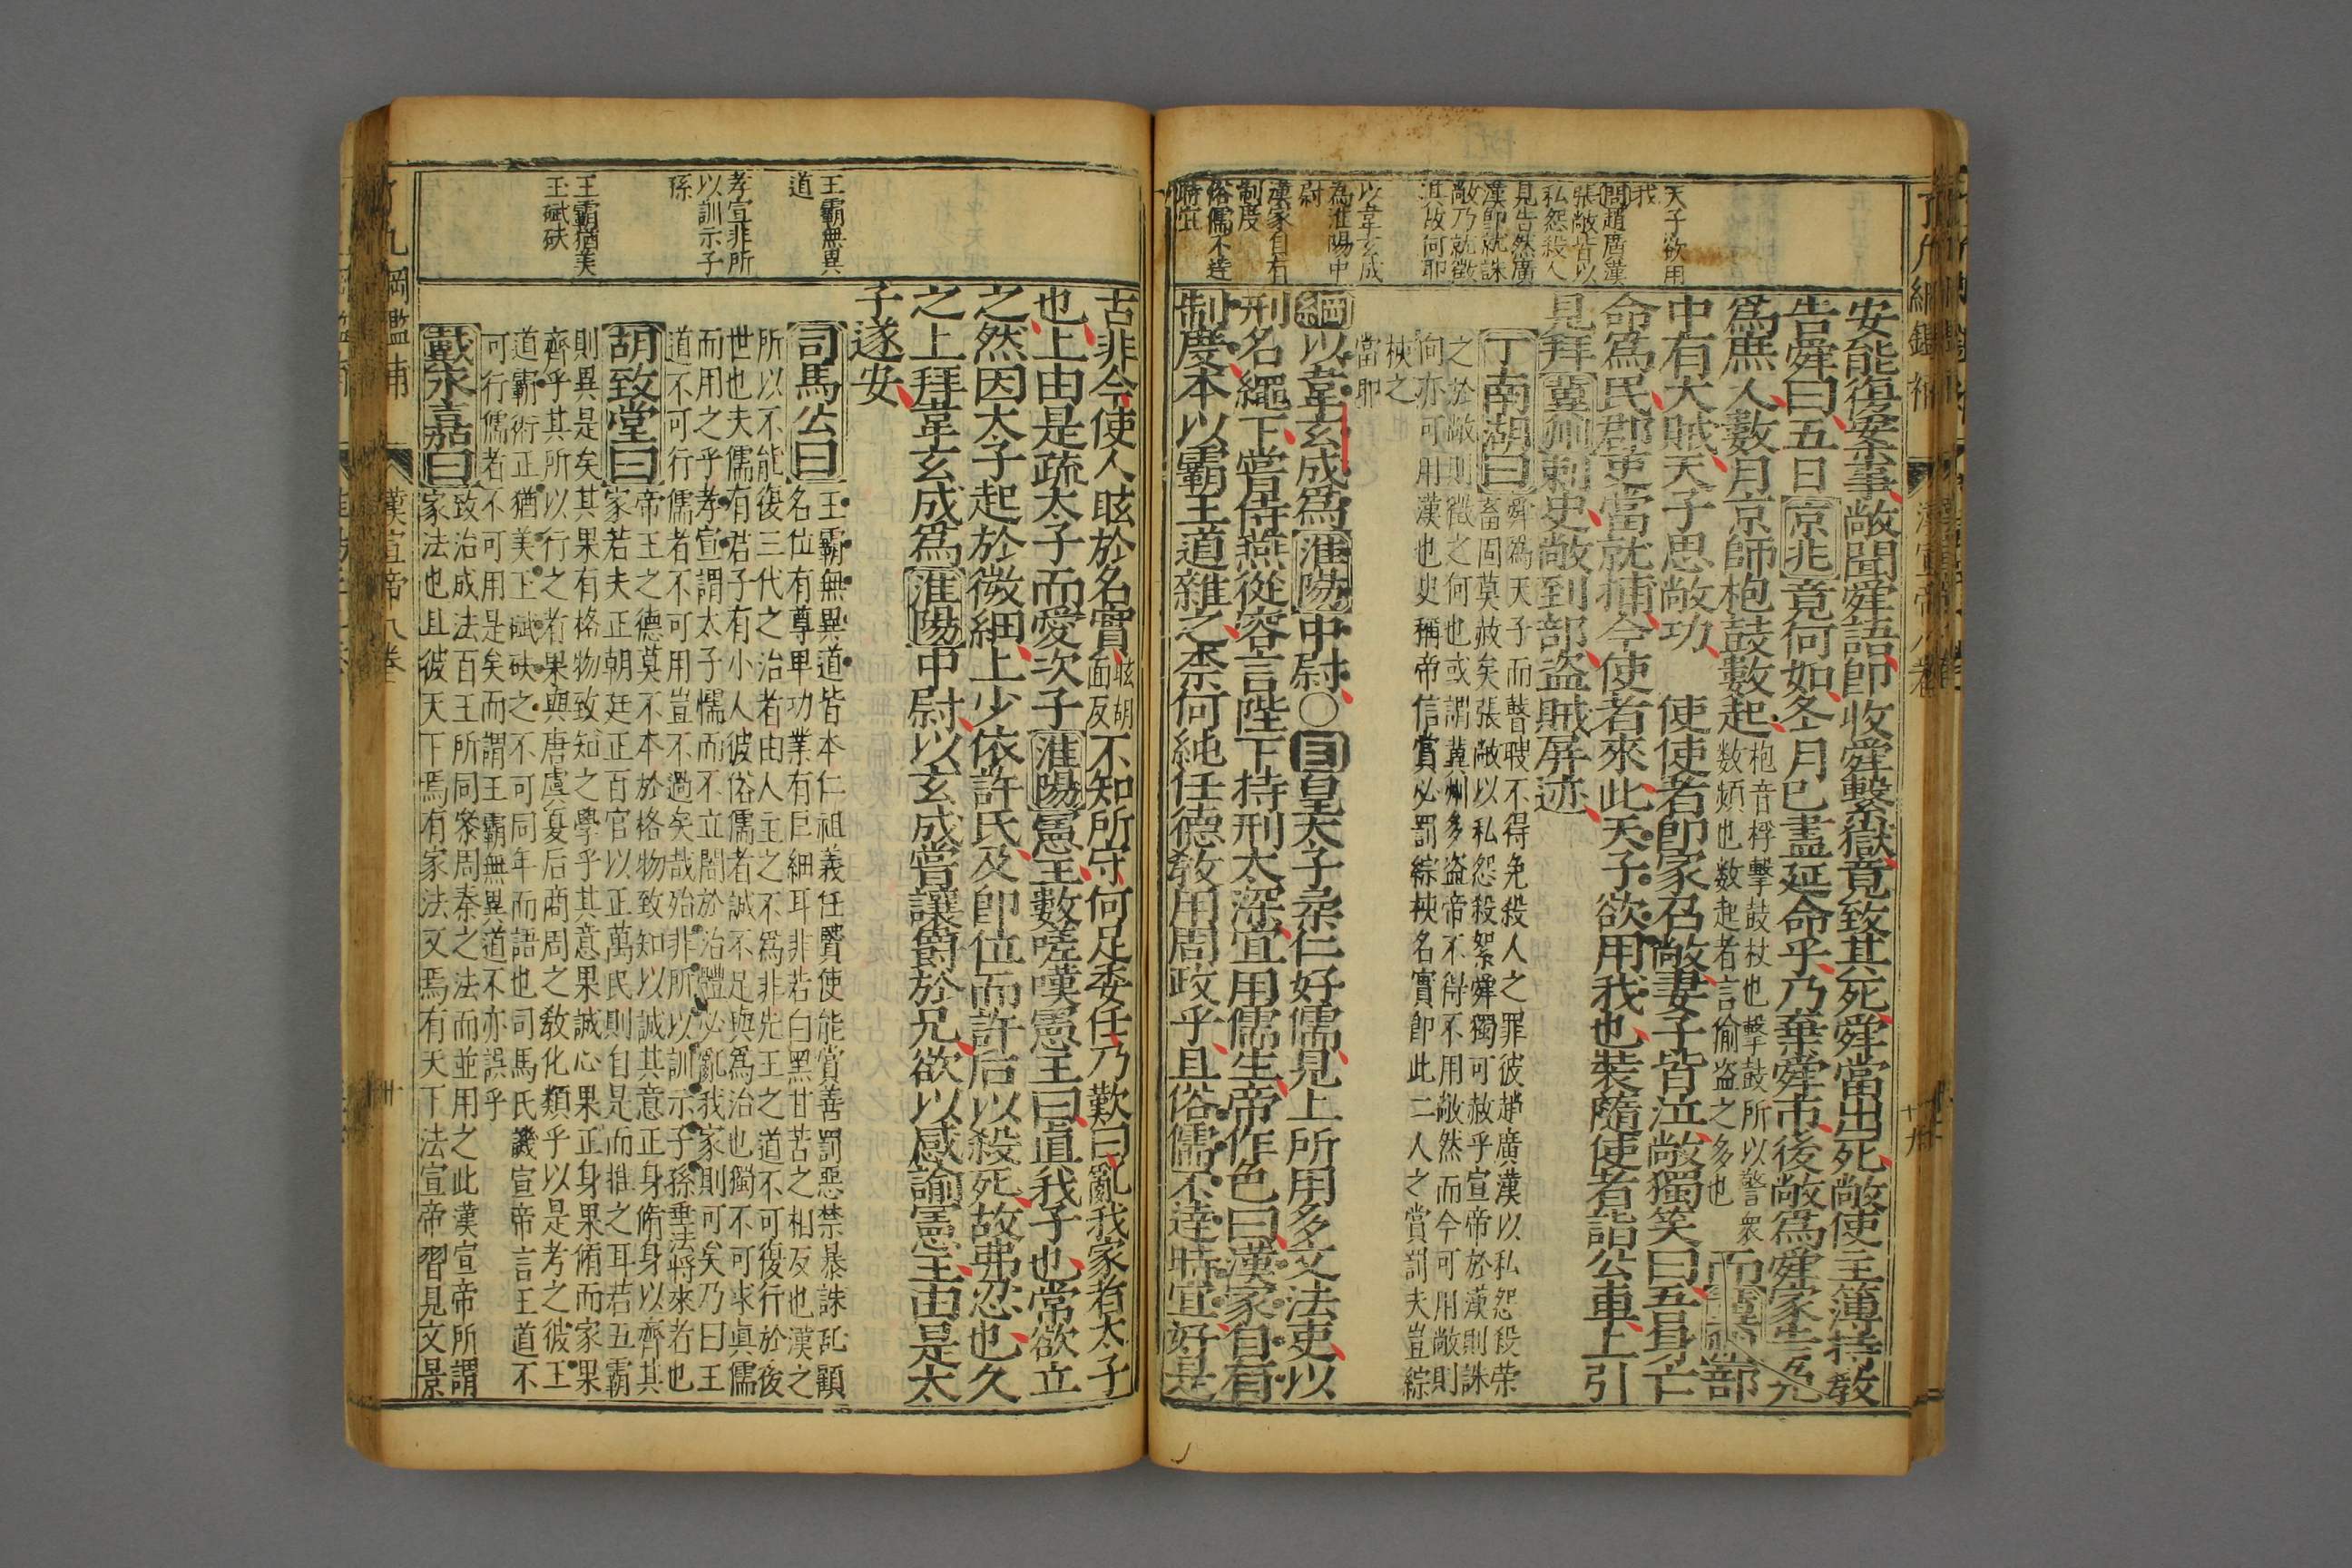 天子欲用
我
問趙廣漢
張敞皆以
私怨殺人
見告然廣
漢卽就誅
敞乃就徵
其故何耶
以韋玄成
為淮陽中
尉
漢家自有
制度
俗儒不達
時宜
安能復案事敞聞舜語卽收舜繫獄竟致其死舜當出死敞使主簿持敎
告舜曰五日京兆竟何如冬月已盡延命乎乃棄舜市後敞爲舜家告免
爲庶人數月京師枹鼓數起
枹音桴擊鼓杖也擊鼓所以警衆
数頻也数起者言偷盗之多也
而冀州部
中有大賊天子思敞功使使者卽家召敞妻子皆泣敞獨笑曰吾身亡
命爲民郡吏當就捕今使者來此天子欲用我也裝隨使者詣公車上引
見拜冀州刺史敞到部盗賊屏迹
丁南湖曰
舜爲天子而瞽瞍不得免殺人之罪彼趙廣漢以私怨殺荣
畜固莫赦矣張敞以私怨殺絮舜獨可赦乎宣帝於漢則誅
之於敞則徵之何也或謂冀州多盗帝不得不用敞然而今可用敞則
向亦可用漢也史稱帝信賞必罰綜核名實卽此二人之賞罰夫豈綜
核之
當耶
綱以韋玄成爲淮陽中尉○目皇太子柔仁好儒見上所用多文法吏以
刑名繩下嘗侍燕從容言陛下持刑太深宜用儒生帝作色曰漢家自有
制度本以霸王道雜之柰何純任德敎用周政乎且俗儒不達時宜好是
王霸無異
道
孝宣非所
以訓示子
孫
王霸猶美
玉碔砆
古非今使人眩於名實
眩胡
面反
不知所守何足委任乃歎曰亂我家者太子
也上由是疏太子而愛次子淮陽憲王數嗟嘆憲王曰眞我子也常欲立
之然因太子起於微細上少依許氏及卽位而許后以殺死故弗忍也久
之上拜韋玄成爲淮陽中尉以玄成嘗讓爵於兄欲以感諭憲王由是太
子遂安
司馬公曰
王霸無異道皆本仁祖義任賢使能賞善罰惡禁暴誅乱顧
名位有尊卑功業有巨細耳非若白黑甘苦之相反也漢之
所以不能復三代之治者由人主之不爲非先王之道不可復行於後
世也夫儒有君子有小人彼俗儒者誠不足與爲治也獨不可求眞儒
而用之乎孝宣謂太子懦而不立闇於治體必亂我家則可矣乃曰王
道不可行儒者不可用豈不過矣哉殆非所以訓示子孫垂法將來者也
胡致堂曰
帝王之德莫不本於格物致知以誠其意正身脩身以齊其
家若夫正朝廷正百官以正萬民則自是而推之耳若五霸
則異是矣其果有格物致知之學乎其意果誠心果正身果脩而家果
齊乎其所以行之者果與唐虞夏后商周之敎化類乎以是考之彼王
道霸術正猶美玉碔砆之不可同年而語也司馬氏譏宣帝言王道不
可行儒者不可用是矣而謂王霸無異道不亦誤乎
戴永嘉曰
致治成法百王所同秦周秦之法而並用之此漢宣帝所謂
家法也且彼天下焉有家法又焉有天下法宣帝習見文景
漢宣帝八卷